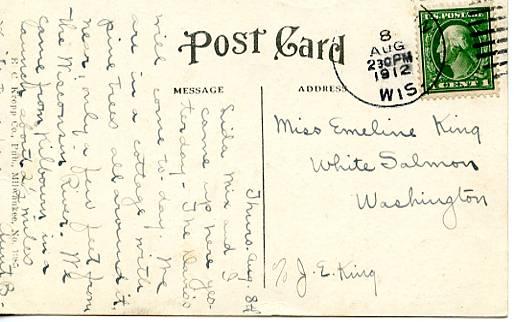 Post Card
MESSAGE
ADDRESS
8
AUG
230PM
1912
WIS.
U.S. POSTAGE
1 CENT 1
Miss Emeline King
White Salmon
Washington
c/o J. E. King
Thurs. Aug. 8th
Lida Mix and I
came up here yes-
terday - The
will come to-day. We
are in a cottage with
pine trees all around it,
near, only a few feet from
the Wisconsin River. We
came from Kilbourn in a
launch about 2½ miles
E. C. Kropp Co., Pub., Milwaukee, No.